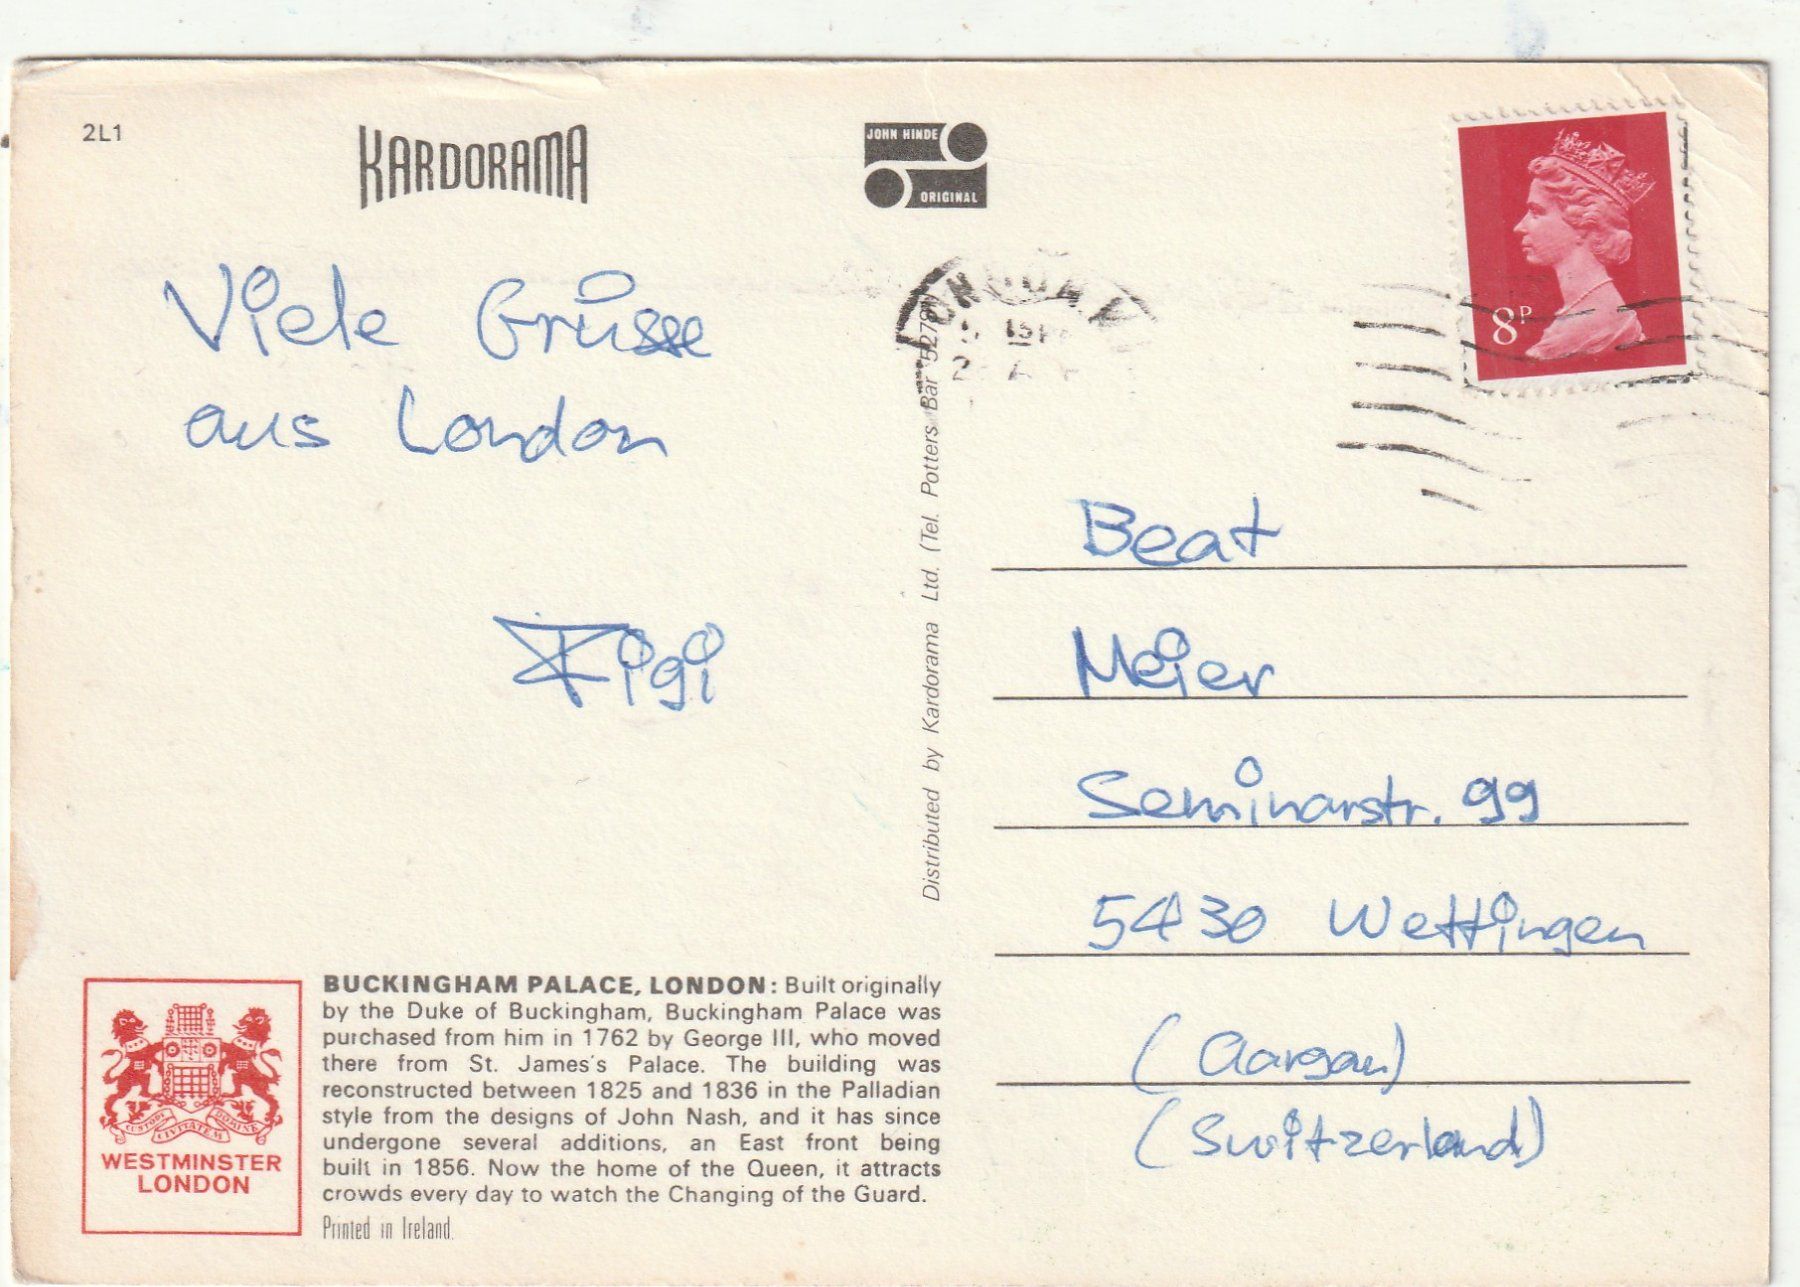 2L1
KARDORAMA
JOHN HINDE
ORIGINAL
8P
Viele Grüsse
aus London
Figi
Distributed by Kardorama Ltd. (Tel. Potters Bar
Beat
Meier
Seminarstr. 99
5430 Wettingen
(Aargau)
(Switzerland)
WESTMINSTER
LONDON
BUCKINGHAM PALACE, LONDON: Built originally
by the Duke of Buckingham, Buckingham Palace was
purchased from him in 1762 by George III, who moved
there from St. James's Palace. The building was
reconstructed between 1825 and 1836 in the Palladian
style from the designs of John Nash, and it has since
undergone several additions, an East front being
built in 1856. Now the home of the Queen, it attracts
crowds every day to watch the Changing of the Guard.
Printed in Ireland.